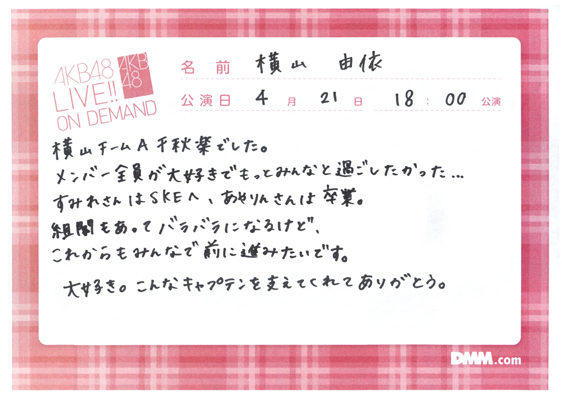 AKB48
LIVE!!
ON DEMAND
AKB
48
名前 横山 由依
公演日 4月 21日 18:00 公演
横山チームA千秋楽でした。
メンバー全員が大好きでもっとみんなと過ごしたかった…
すみれさんはSKEへ、あやりんさんは卒業。
組閣もあってバラバラになるけど、
これからもみんなで前に進みたいです。
大好き。こんなキャプテンを支えてくれてありがとう。
DMM.com